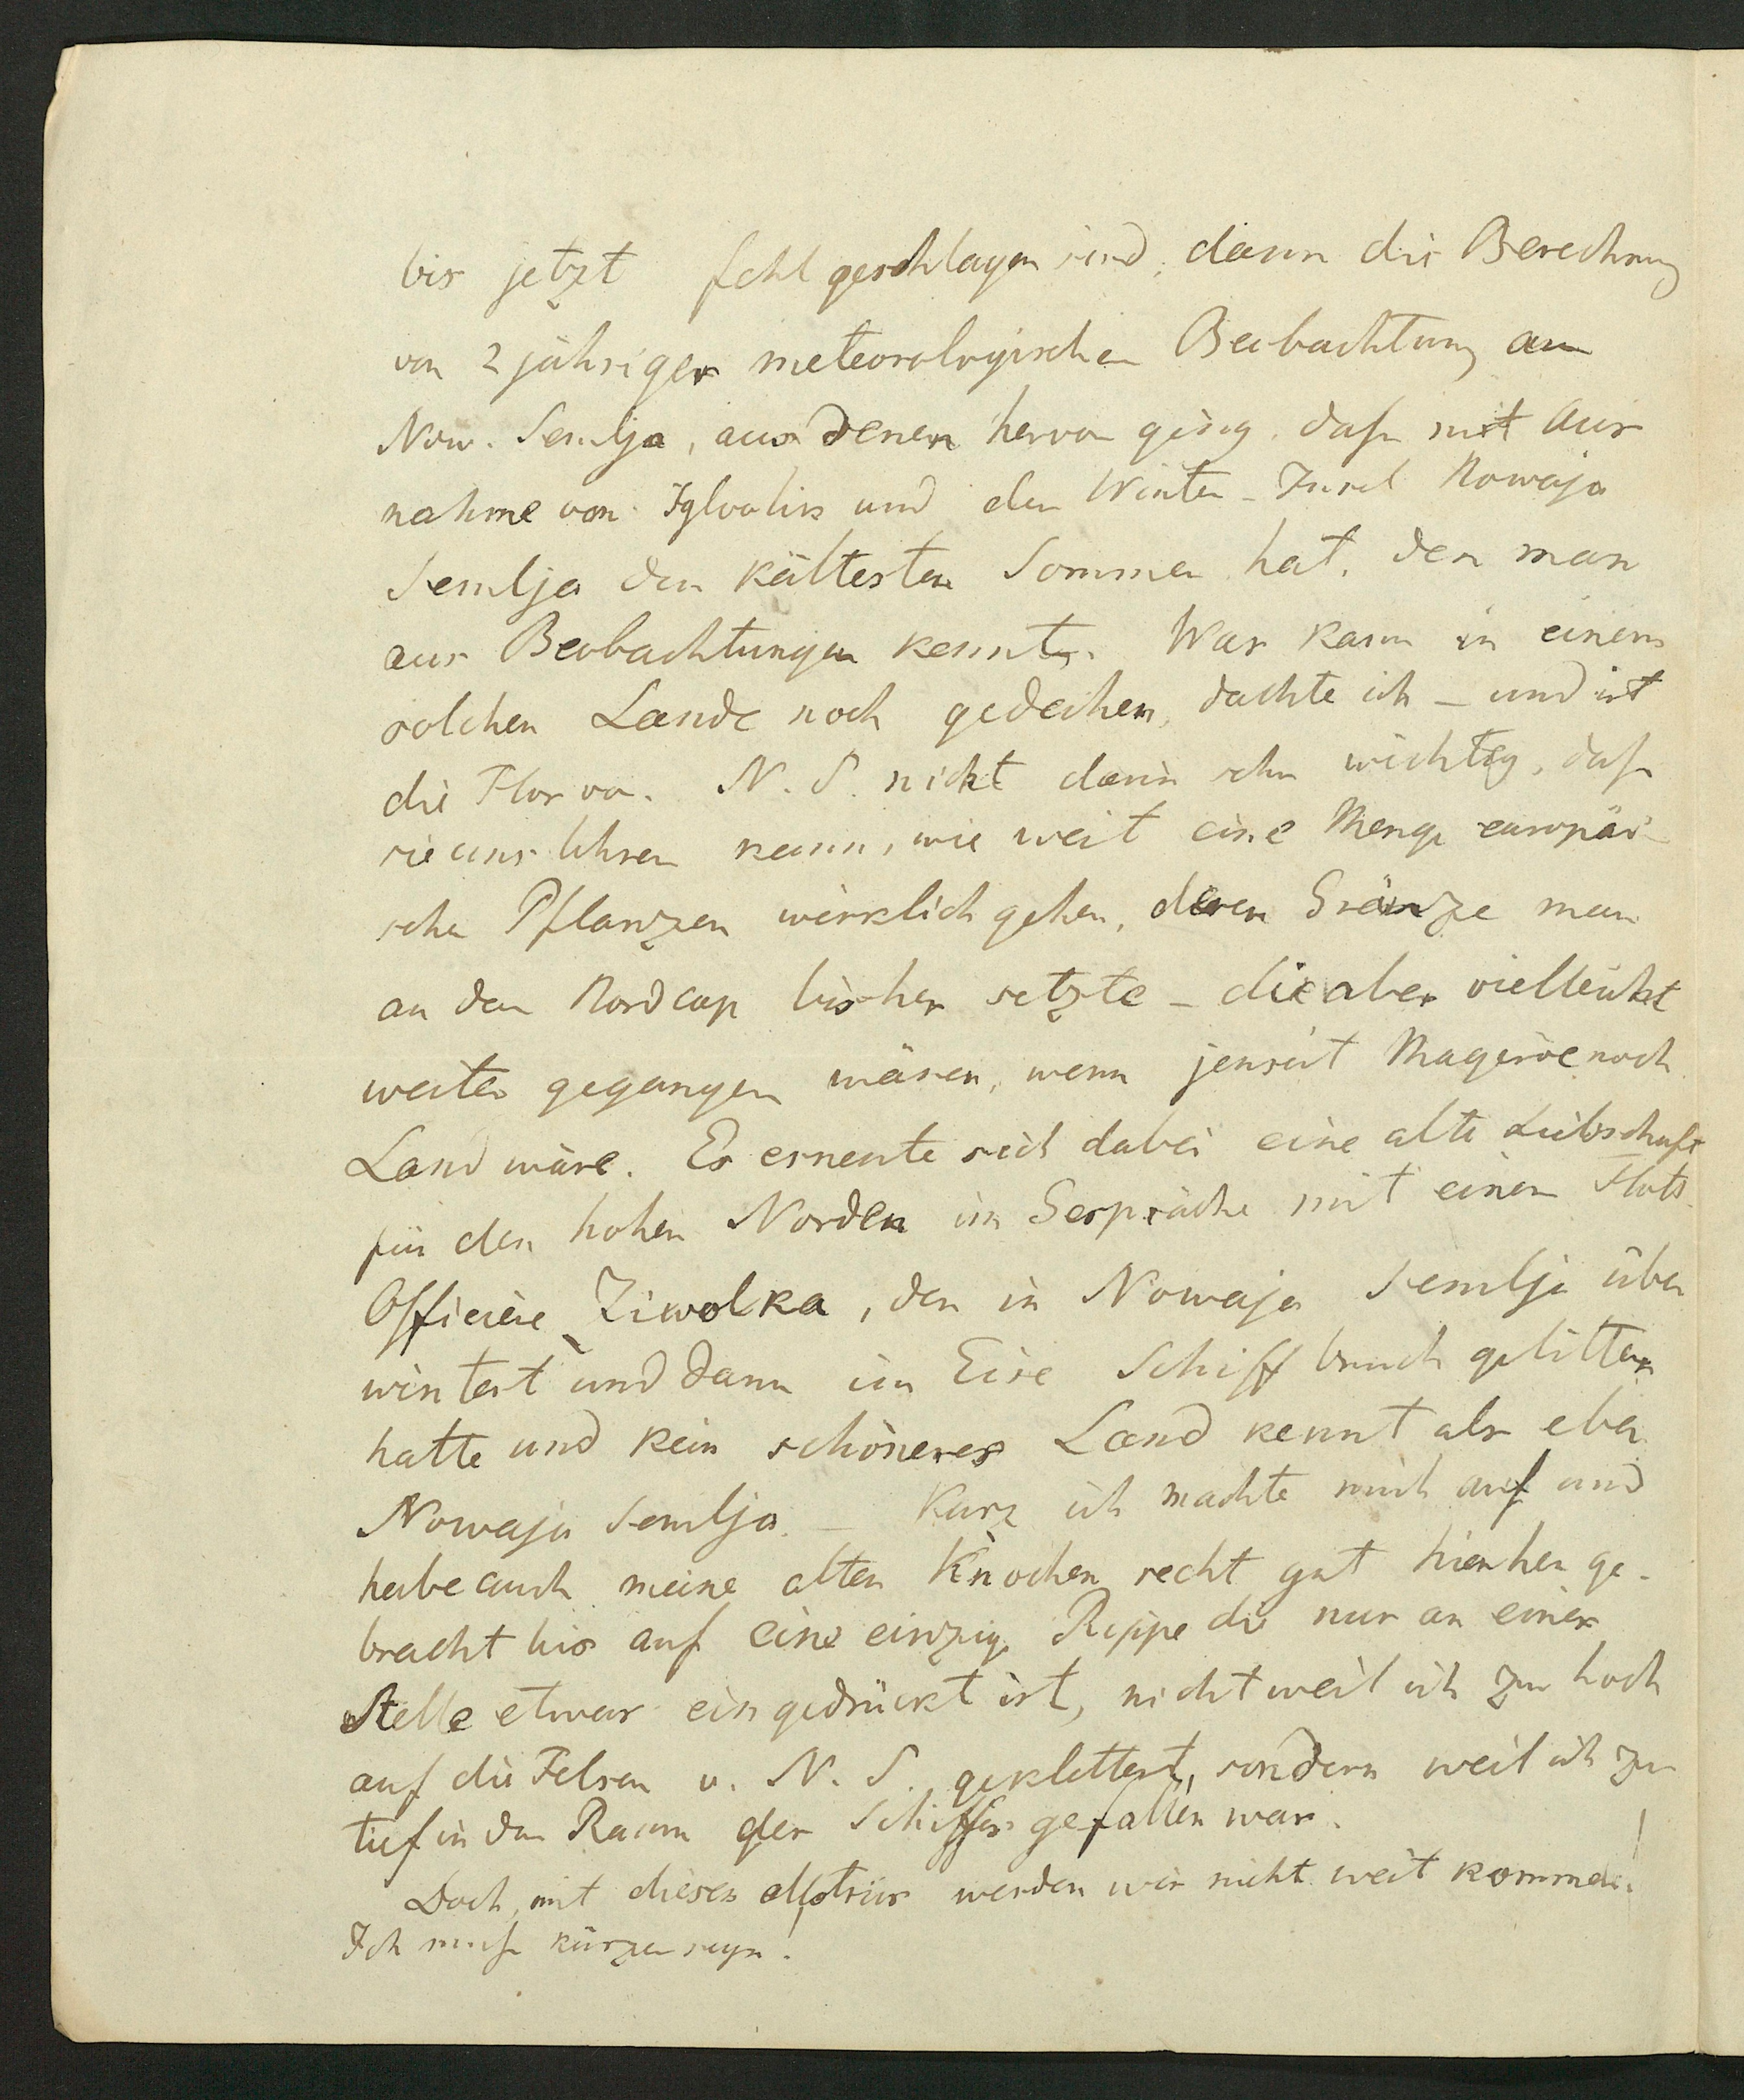 bis jetzt fehl geschlagen sind, dann die Berechnung
von 2 jähriger meteorologischen Beobachtung an
Now. Semlja, aus denen hervor ging, daß mit Aus
nahme von Igloolik und der Winter-Insel Nowaja
Semlja den kältesten Sommer hat, den man
aus Beobachtungen kennt. Was kann in einem
solchen Lande noch gedeihen, dachte ich – und ist
die Flor von N. S. nicht darin sehr wichtig, daß
sie uns lehren kann, wie weit eine Menge europäi-
scher Pflanzen wirklich gehen, deren Gränze man
an den Nordcap bisher setzte – die aber vielleicht
weiter gegangen wären, wenn jenseit Mageröe noch
Land wäre. Es erneute sich dabei eine alte Liebschaft
für den hohen Norden im Gespräche mit einem Flots
Officiere Ziwolka, der in Nowaja Semlja über
wintert und dann im Eise Schiffbruch gelitten
hatte und kein schöneres Land kennt als eben
Nowaja Semlja. – Kurz ich machte mich auf und
habe auch meine alten Knochen recht gut hierher ge-
bracht bis auf eine einzige Rippe die nur an einer
Stelle etwas eingedrückt ist, nicht weil ich zu hoch
auf die Felsen v. N. S. geklettert, sondern weil ich zu
tief in den Raum des Schiffes gefallen war.
Doch, mit dieser werden wir nicht weit kommen!
Ich muß kürzer seyn.